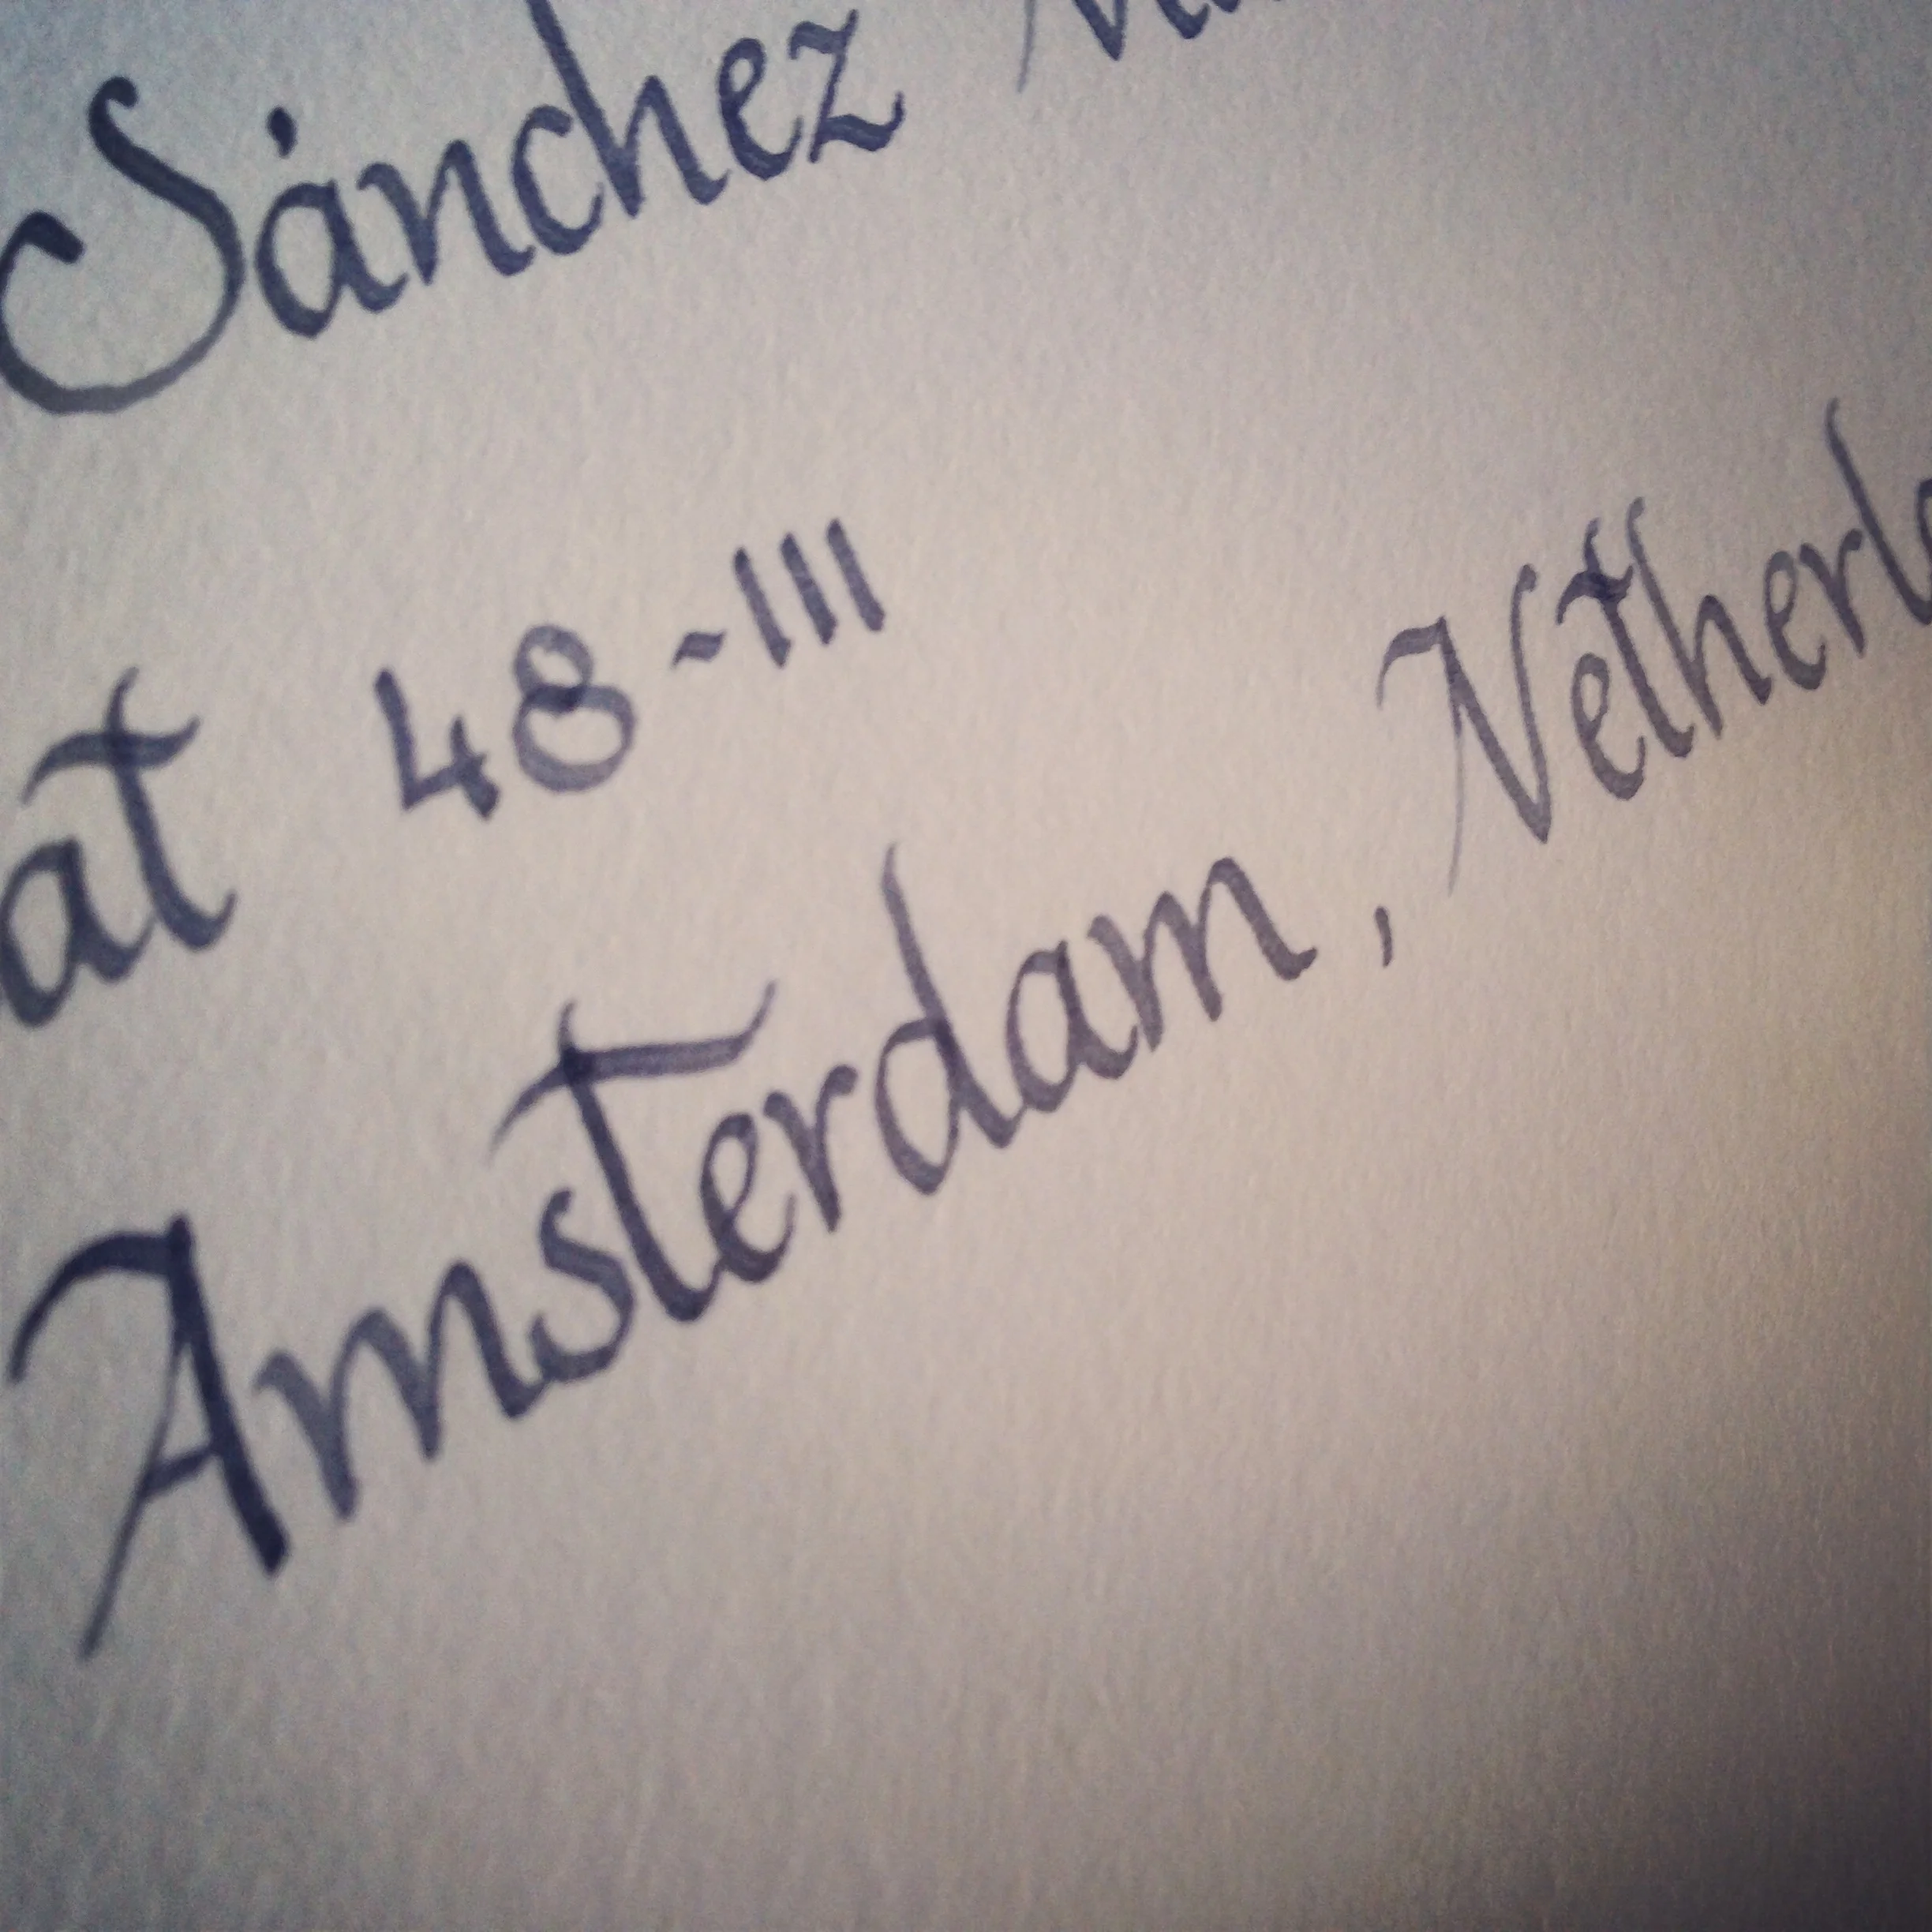 Sánchez
at 48-III
Amsterdam, Netherl